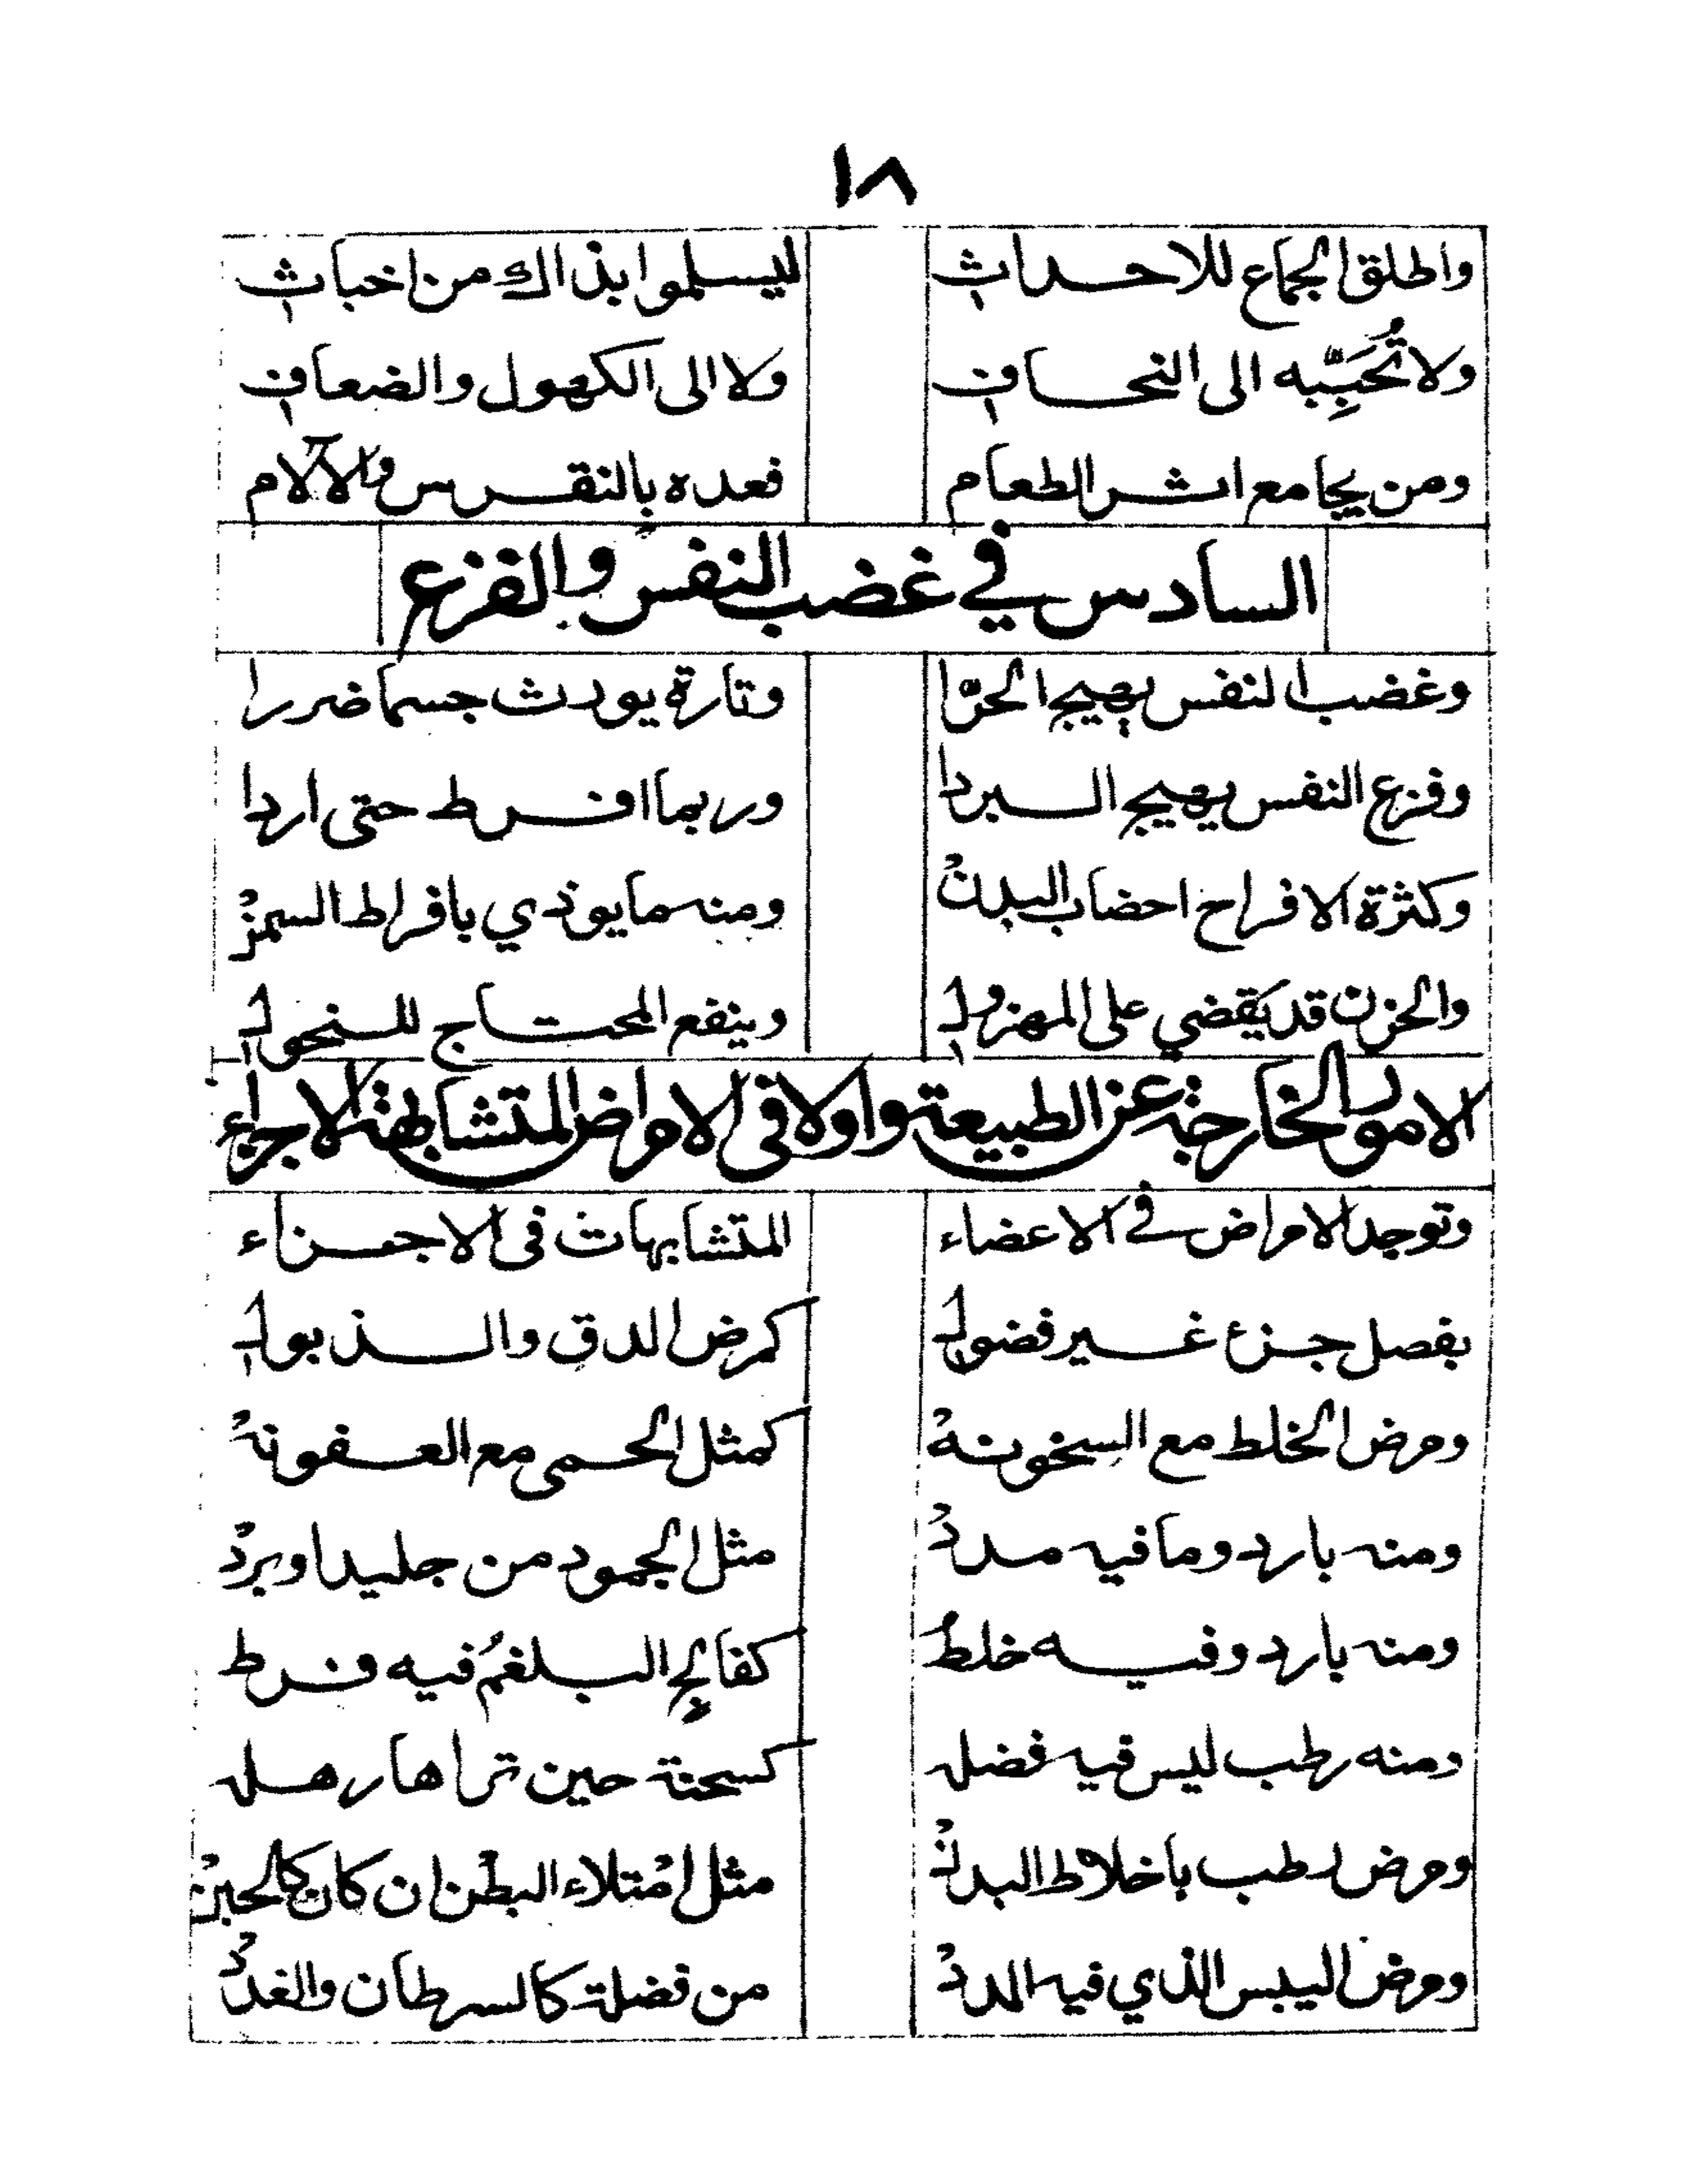 ١٨
واطلق الجماع للاحداثِ ليسلموا بذاك من اخباثِ
ولا تُحَبِّبه الى النحافِ ولا الى الكهول والضعافِ
ومن يجامع اثر الطعام فعده بالنقرس والآلام
السادس في غضب النفس والفزع
وغضب النفس يهيج الحرّا وتارة يورث جسما ضررا
وفزع النفس يهيج البردا وربما افرط حتى اردا
وكثرة الافراح احضاب البدنْ ومنه ما يوذي بافراط السمنْ
والحزن قد يقضي على المهزولِ وينفع المحتاج للنحولِ
الامور الخارجة عن الطبيعة واولا فى الامراض المتشابهة الاجزاء
وتوجد الامراض في الاعضاء المتشابهات فى الاجزاء
بفصل جزء غير فضولِ كمرض الدق والذبولِ
ومرض الخلط مع السخونهْ كمثل الحمى مع العفونهْ
ومنه بارد وما فيه مددْ مثل الجمود من جليد او بردْ
ومنه بارد وفيه خلطُ كفالج البلغمُ فيه فرط
ومنه رطب ليس فيه فضله كسحنة حين تراها رهله
ومرض رطب باخلاط البدنْ مثل امْتلاء البطْن ان كان كالحبنْ
ومرض اليبس الذي فيه المددْ من فضلة كالسرطان والغددْ